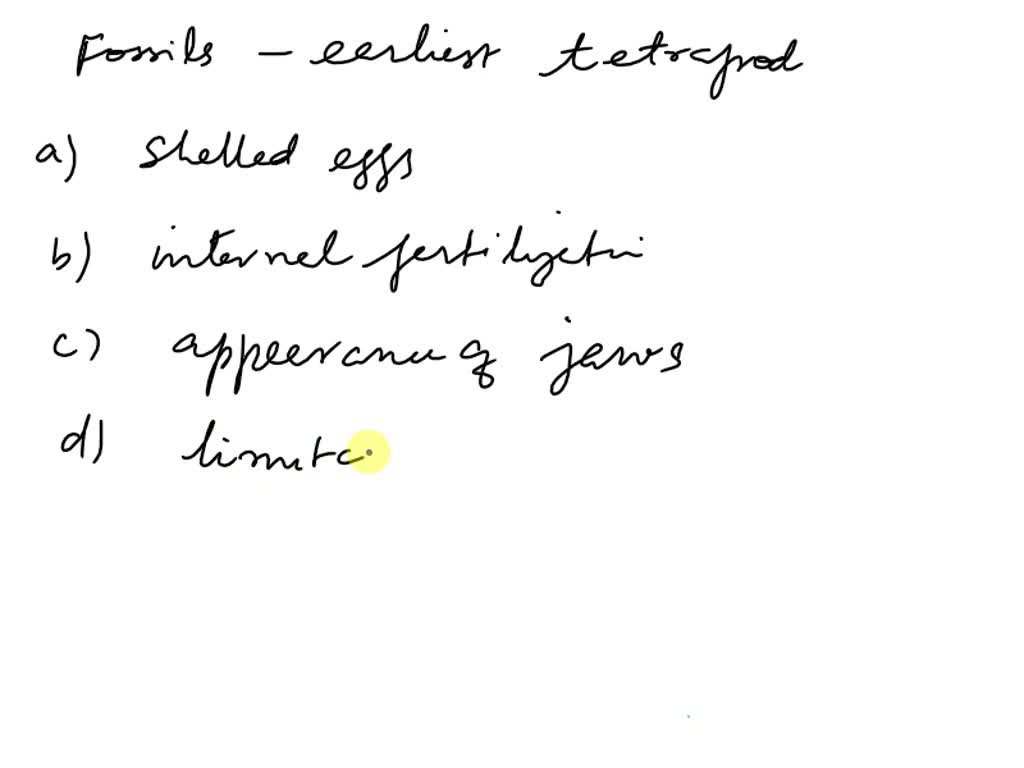 Fossils - earliest tetrapod
a) Shelled eggs
b) internal fertilization
c) appearance of jaws
d) limita